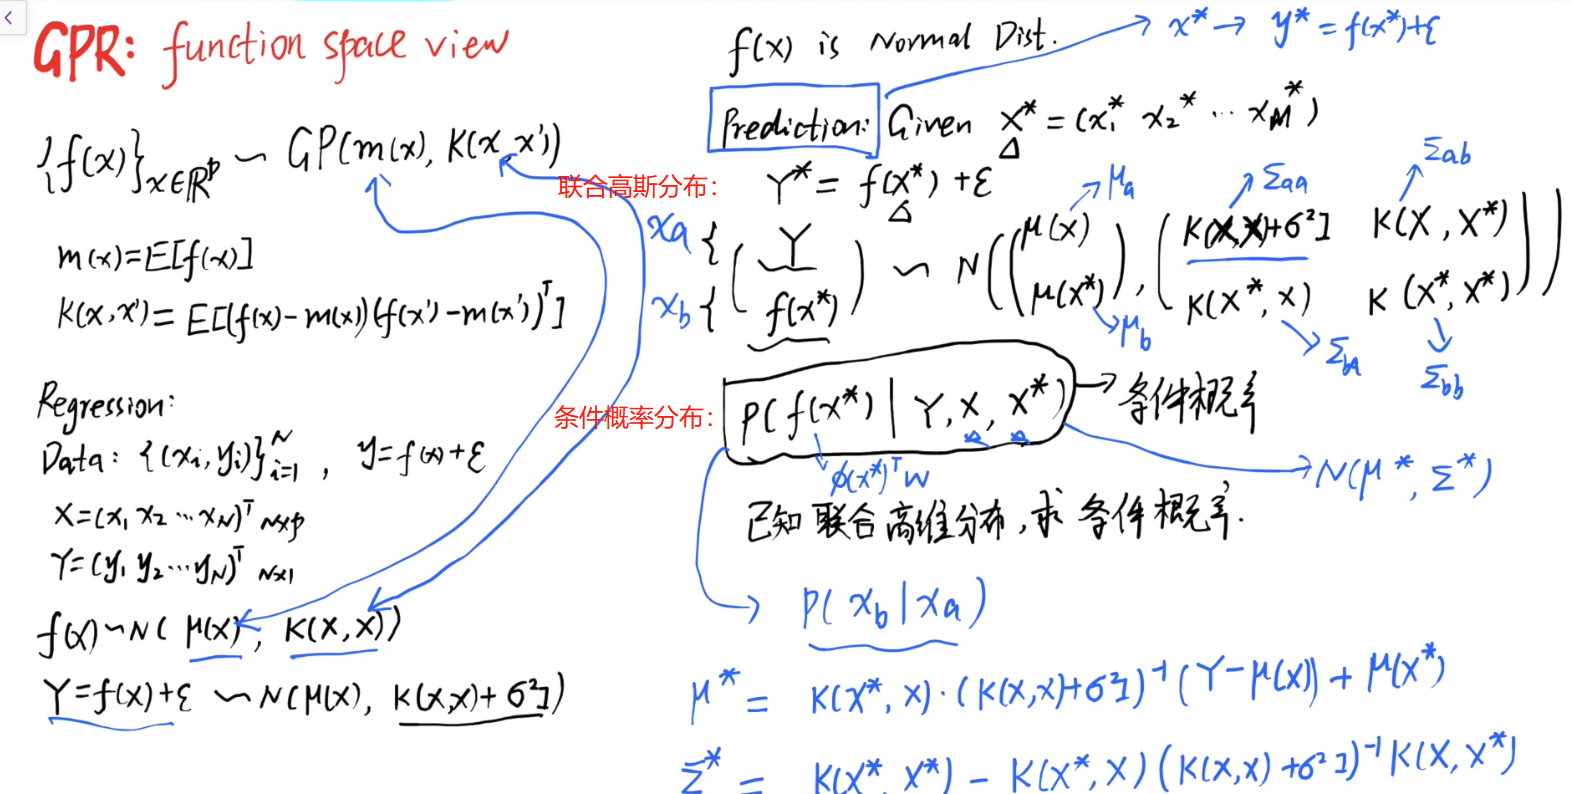 GPR: function space view
{f(x)}x∈ℝᵖ ∼ GP(m(x), K(x,x'))
m(x)=E[f(x)]
K(x,x')=E[(f(x)-m(x))(f(x')-m(x'))ᵀ]
Regression:
Data: {(xᵢ,yᵢ)}ᵢ₌₁ᴺ , y=f(x)+ε
X=(x₁ x₂ ⋯ xN)ᵀ N×p
Y=(y₁ y₂ ⋯ yN)ᵀ N×1
f(x)∼N( μ(x), K(X,X))
Y=f(x)+ε ∼N(μ(x), K(X,X)+σ²I)
f(x) is Normal Dist.
x* → y* = f(x*)+ε
Prediction: Given X* = (x₁* x₂* ⋯ xM*)
联合高斯分布：
Y* = f(X*) +ε
μa Σaa Σab
xa { Y μ(X) K(X,X)+σ²I K(X,X*)
∼ N
xb { f(X*) μ(X*) K(X*,X) K(X*,X*)
μb Σba Σbb
条件概率分布：
P(f(X*) | Y,X, X*) → 条件概率
ϕ(x*)ᵀw
N(μ*, Σ*)
已知 联合高维分布,求 条件概率.
P(xb|xa)
μ* = K(X*,X)·(K(X,X)+σ²I)⁻¹(Y-μ(X)) + μ(X*)
Σ* = K(X*,X*) - K(X*,X)(K(X,X)+σ²I)⁻¹K(X,X*)